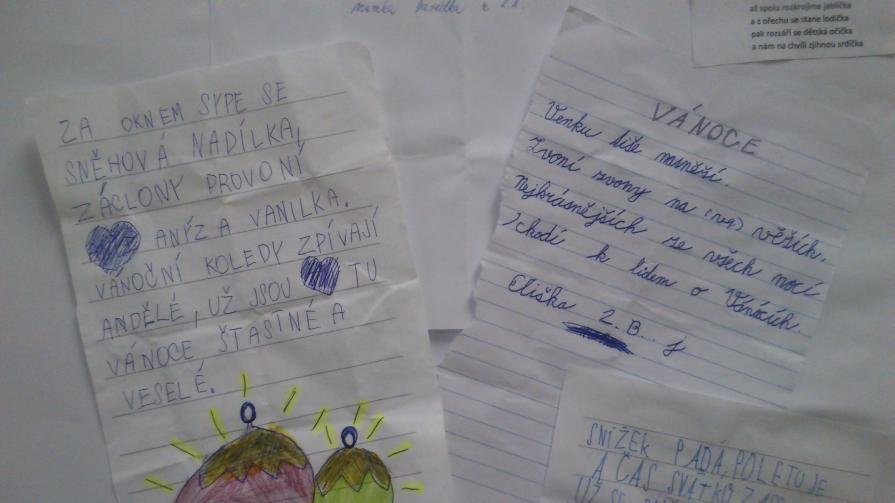 až spolu rozkrojíme jablíčka
a z ořechu se stane lodička
pak rozzáří se dětská očička
a nám na chvíli zjihnou srdíčka
ZA OKNEM SYPE SE
SNĚHOVÁ NADÍLKA,
ZÁCLONY PROVONÍ
ANÍZ A VANILKA.
VÁNOČNÍ KOLEDY ZPÍVAJÍ
ANDĚLÉ, UŽ JSOU TU
VÁNOCE ŠŤASTNÉ A
VESELÉ.
VÁNOCE
Venku tiše nasněží.
Zvoní zvony na (va) věžích.
Nejkrásnějších ze všech nocí
chodí k lidem o Vánocích.
Eliška 2.B
SNÍŽEK PADÁ, POLETUJE
A ČAS SVÁTKŮ
UŽ SE